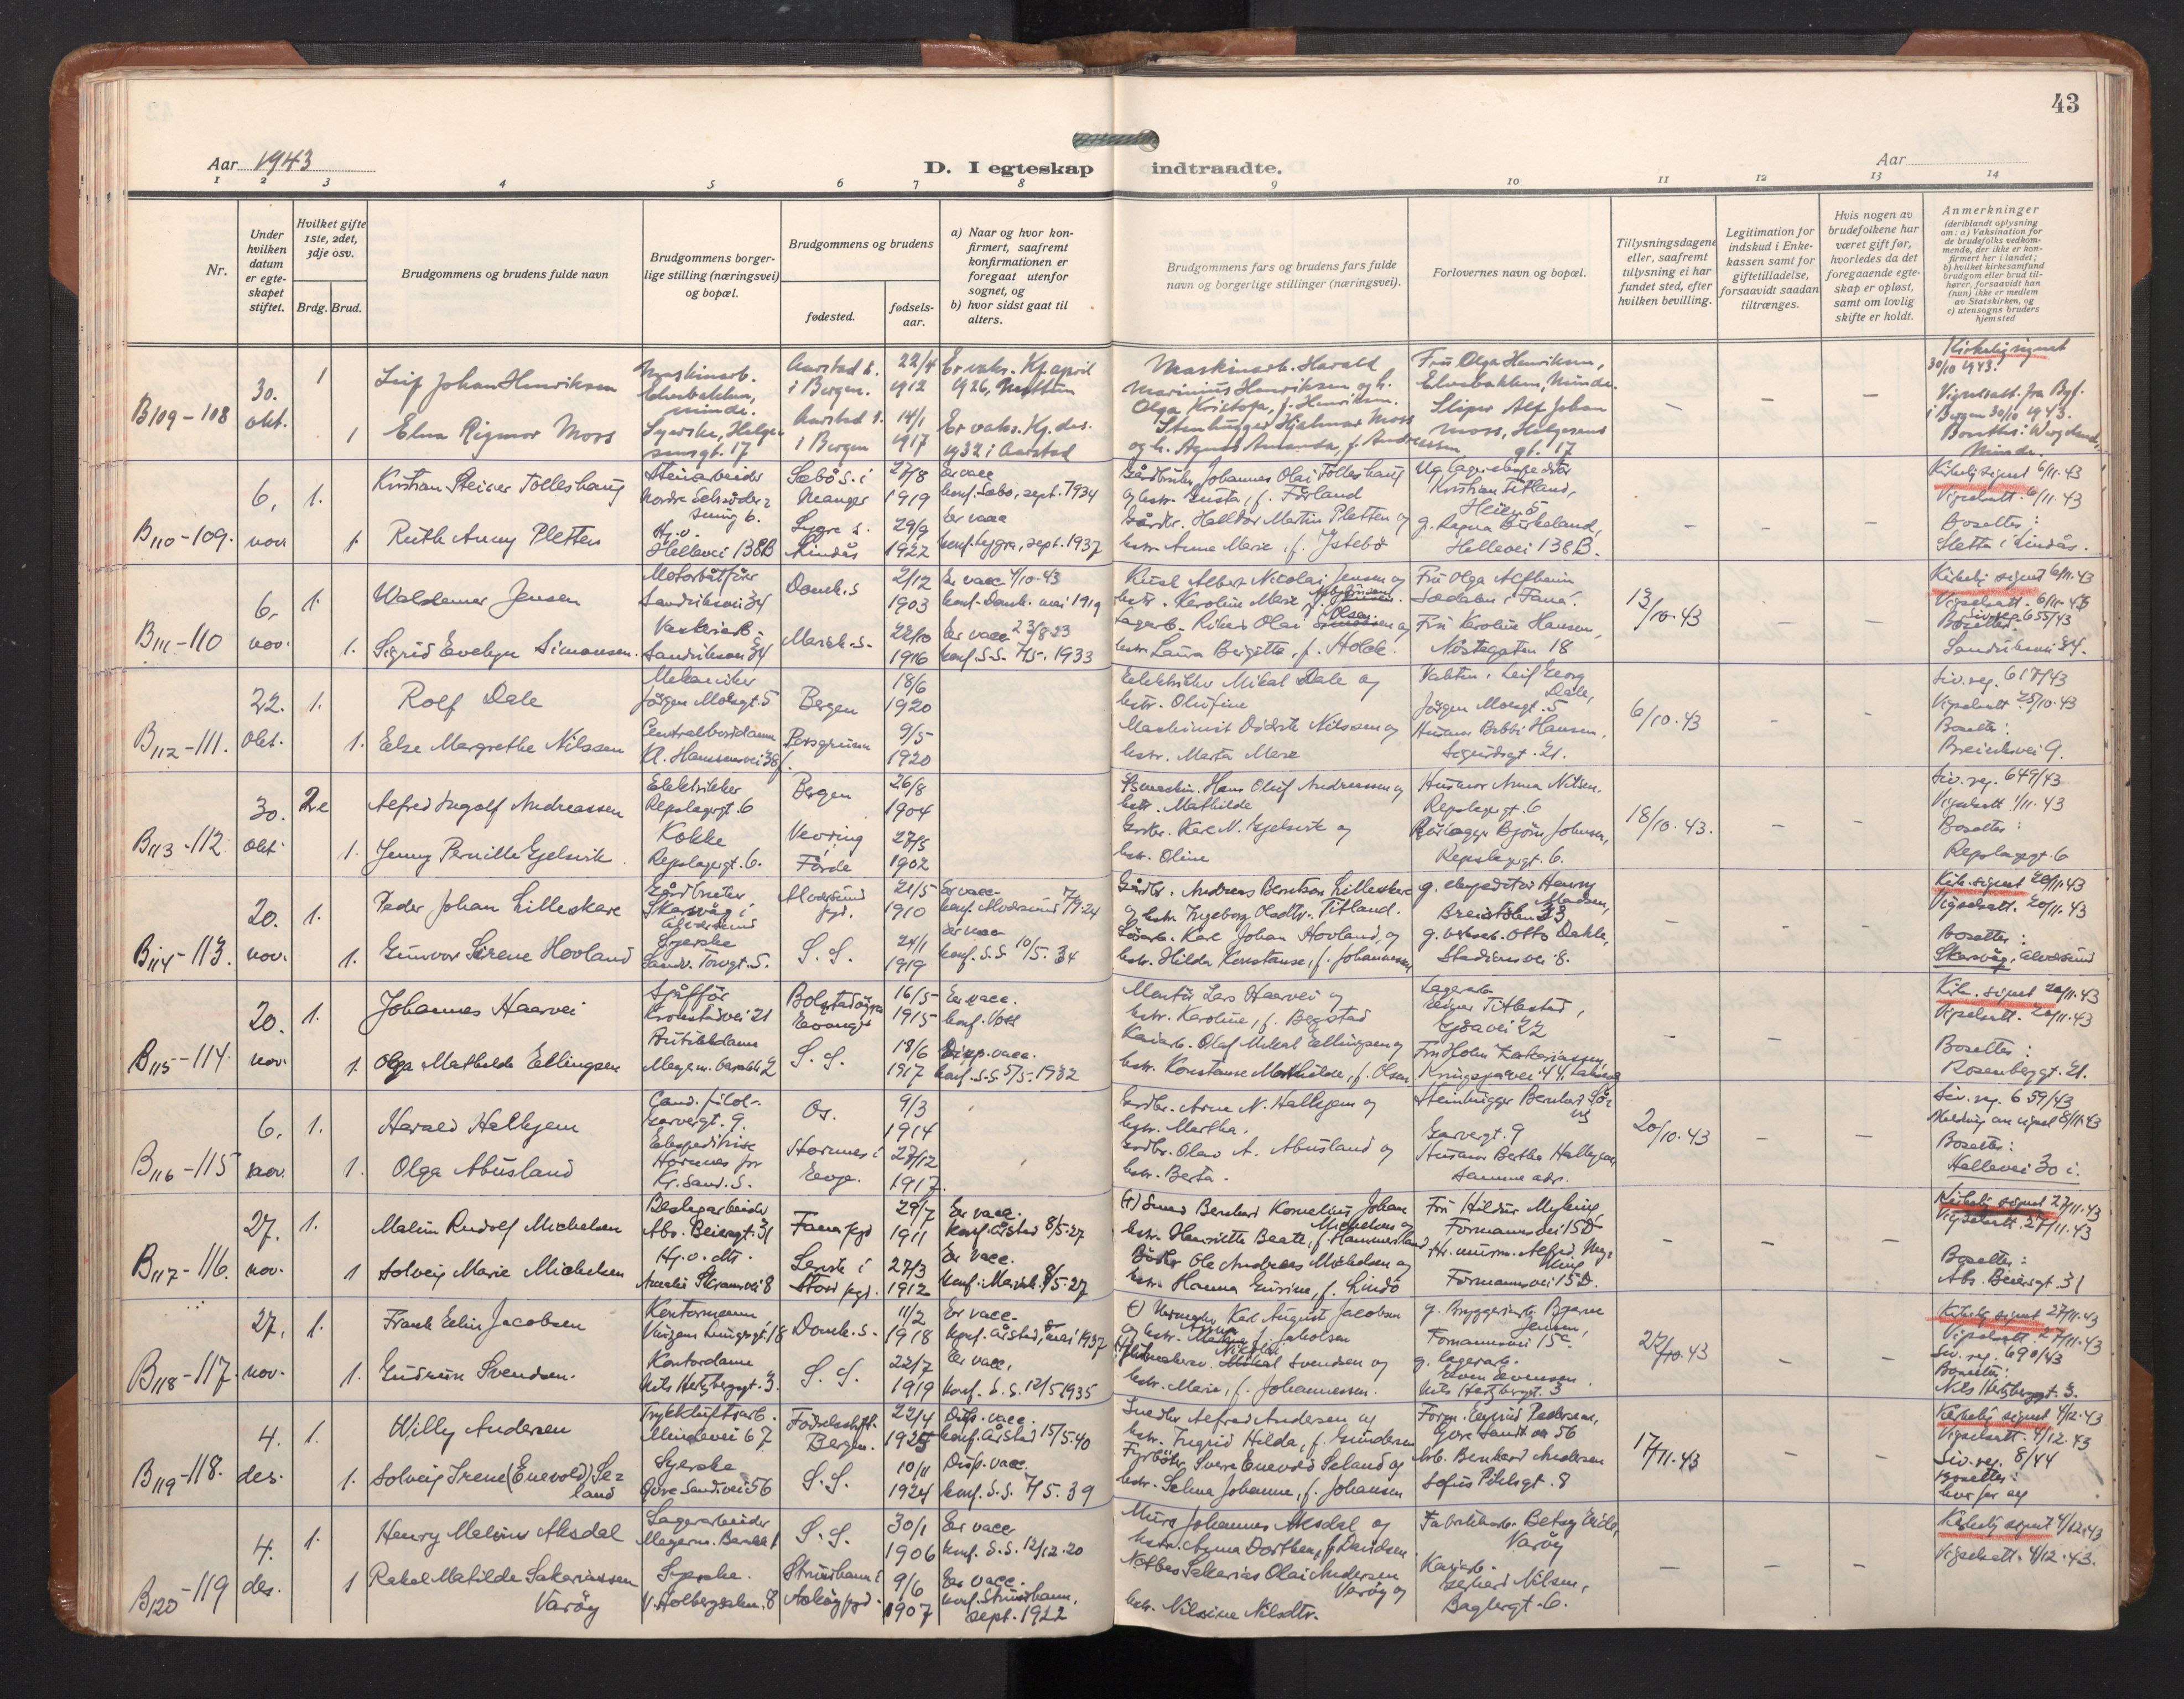 43
Aar 1943
D. I egteskap indtraadte.
Aar
1 2 3 4 5 6 7 8 9 10 11 12 13 14
Nr.
Under hvilken datum er egteskapet stiftet.
Hvilket gifte 1ste, 2det, 3dje osv.
Brdg. Brud.
Brudgommens og brudens fulde navn
Brudgommens borgerlige stilling (næringsvei) og bopæl.
Brudgommens og brudens
fødested.
fødselsaar.
a) Naar og hvor konfirmert, saafremt konfirmationen er foregaat utenfor sognet, og
b) hvor sidst gaat til alters.
Brudgommens fars og brudens fars fulde navn og borgerlige stillinger (næringsvei).
Forlovernes navn og bopæl.
Tillysningsdagene eller, saafremt tillysning ei har fundet sted, efter hvilken bevilling.
Legitimation for indskud i Enkekassen samt for giftetilladelse, forsaavidt saadan tiltrænges.
Hvis nogen av brudefolkene har været gift før, hvorledes da det foregaaende egteskap er opløst, samt om lovlig skifte er holdt.
Anmerkninger
(deriblandt oplysning om: a) Vaksination for de brudefolks vedkommende, der ikke er konfirmert her i landet;
b) hvilket kirkesamfund brudgom eller brud tilhører, forsaavidt han (hun) ikke er medlem av Statskirken, og
c) utensogns bruders hjemsted
B109-108
30. okt.
1
Leif Johan Henriksen
Maskinarb.
Aarstad s. i Bergen.
22/4 1912
Er vaks. Kf. april 1926,
Maskinarb. Harald Marinius Henriksen og h. Olga Kristofa, f. Henriksen.
Fru Olga Henriksen, Elvebakken, Minde.
Kirkelig signet 30/10 1943.
1
Elna Rigmor Moss
Syerske, Helgesensgt. 17
Aarstad s. i Bergen
14/1 1917
Er vaks. Kf. des. 1932 i Aarstad
Stenhugger Hjalmar Moss og h. Agnes Amanda, f. Andreassen
Alf Johan Moss, Helgesens gt. 17
Vigselsatt. fra Byf. i Bergen 30/10 1943.
B110-109.
6. nov
1.
Kristian Steiner Tolleshaug
Stenarbeider
Sæbø s. i Manger
27/8 1919
Er vacc konf. Sæbø, sept. 1934
Gårdbruker Johannes Olai Tolleshaug og hstr. Gusta, f. Førland
Kristian Titland,
Kirkelig signet 6/11.43
Vigselsatt. 6/11.43
1.
Ruth Anny Pletten
H.v. Hellevei 138B
Lygre s. Lindås
29/9 1922
Er vacc konf. Lygra, sept. 1937
Gårdbr. Halldor Martin Pletten og hstr. Anne Marie, f. Istebø
g. Ragna Birkeland, Hellevei 138B.
Bosettes: Sletta i Lindås.
B111-110
6. nov.
1.
Waldemar Jensen
Motorbåtfører Sandviksvei 34
Domk.s
2/12 1903
Er vacc 4/10.43 konf. Domk. mai 1919
Kusk Albert Nicolai Jensen og hstr. Karoline Marie
Fru Olga Alfheim Sædalen i Fana.
13/10.43
Kirkelig signet 6/11.43
Vigselsatt. 6/11.43
1.
Sigrid Evelyn Simonsen.
Sandviksvei 34
Mariek.s.
22/10 1916
Er vacc konf. S.S. 7/5. 1933
hstr. Laura Birgitte, f. Holck.
Fru Karoline Hansen, Nøstegaten 18
Siv.reg. 655/43
Bosettes: Sandviksvei 34.
B112-111.
22. okt.
1.
Rolf Dale
Mekaniker Jørgen Moesgt. 5
Bergen
18/6 1920
Elektriker Mikal Dale og hstr. Olufine
Leif Georg Dale, Jørgen Moesgt. 5
6/10.43
Siv.reg. 617/43
1.
Else Margrethe Nilssen
Centralborddame Kl. Hansensvei 38
Porsgrunn
9/5 1920
Maskinist Didrik Nilssen og hstr. Marta Marie
Husmor Bobbi Hansen, Sigurdsgt. 21.
Bosettes: Breiviksvei 9.
B113-112
30. okt.
2.
Alfred Ingolf Andreassen
Elektriker Repslagergt. 6
Bergen
26/8 1904
Hans Oluf Andreassen og hstr. Mathilde
Husmor Anna Nilsen. Repslagergt. 6
18/10.43.
Siv.reg. 649/43
Vigselsatt 1/11.43
1.
Jenny Pernille Gjelsvik
Kokke Repslagergt. 6.
Vevring Førde
27/5 1902
Gårdbr. Karl N. Gjelsvik og hstr. Oline
Rørlegger Bjørn Johnsen, Repslagergt. 6.
Bosettes: Repslagergt. 6
B114-113.
20. nov.
1.
Peder Johan Lilleskare
Gårdbruker Skarsvåg i Alversund
Alversund pgd.
21/5 1910
Er vacc. konf. Alversund 7/9.24
Gårdbr. Andreas Berntsen Lilleskare og hstr. Ingeborg Olsdtr. Titland.
g. ekspeditør Henry Madsen, Breistølen 33
Kirk. signet 20/11.43
Vigselsatt. 20/11.43
1.
Gunvor Sirene Hovland
Syerske Sandv. Torvgt. 5.
S. S.
24/1 1919
Er vacc konf. S.S. 10/5. 34
Karl Johan Hovland, og hstr. Hilda Konstanse, f. Johannessen
g. verksarb. Otto Dahle, Stadionsvei 8.
Bosettes: Skarsvåg, Alversund
B115-114
20. nov.
1.
Johannes Haarvei
Sjåffør Kronstadvei 21
Bolstadøyra Evanger
16/5 1915
Er vacc. konf. Voss
Montør Lars Haarvei og hstr. Karoline, f. Bergstad
Lagerarb. Einar Titlestad,
Kirk. signet 20/11.43
Vigselsatt. 20/11.43
1.
Olga Mathilde Ellingsen
Butikkdame
S. S.
18/6 1917
Disp. vacc. konf. S.S. 5/5. 1932
Kaiarb. Olaf Mikal Ellingsen og hstr. Konstanse Mathilde, f. Olsen
Fru Holm Zakariassen,
Bosettes: Rosenbergt. 21.
B116-115
6. nov.
1.
Harald Halhjem
Cand. filol. Garvergt. 9.
Os.
9/3 1914
Gårdbr. Arne N. Halhjem og hstr. Martha.
Steinhugger Garvergt. 9
20/10.43
Siv. reg. 659/43
Melding om vigsel 8/11.43
1.
Olga Abusland
Ekspeditrise Hornnes pr Kr.sand. S.
Hornnes i Evje.
27/12 1917.
Gårdbr. Olav A. Abusland og hstr. Berta.
Husmor Bertha Halhjem, samme adr.
Bosettes: Hellevei 30 i.
B117-116.
27. nov.
1.
Malvin Rudolf Michelsen
Beslagarbeider Abs. Beiersgt. 31
Fana pgd
29/7 1911
Er vacc. konf. Årstad 8/5.27
(+) Smed Bernhard Kornelius Johan Michelsen og hstr. Henriette Beate, f. Hammersland
Fru Hildur Myking, Formannsvei 15D
Kirkelig signet 27/11.43
Vigselsatt. 27/11.43
1
Solveig Marie Michelsen
H.v. dtr. Amalie Skramsvei 8
Lervik i Stord pgd.
27/3 1912
Er vacc. konf. Mariek. 8/5.27
Bødker Ole Andreas Michelsen og hstr. Hanna Gurine, f. Lindø
Hr. murm. Alfred Myking Formannsvei 15D.
Bosettes: Abs. Beiersgt. 31
B118-117.
27. nov.
1.
Frank Edin Jacobsen
Kontormann
Domk.s.
11/2 1918
Er vacc. konf. Årstad,
(+) Karl August Jacobsen
g. Bryggeriarb. Bjarne Jensen, Formannsvei 15c.
27/10.43
Kirkelig signet 27/11.43
Vigselsatt. 27/11.43
Siv. reg. 690/43
1.
Gudrun Svendsen.
Kontordame Nils Hertzbergsgt. 3.
S. S.
22/7 1919
Er vacc. konf. S.S. 12/5 1935
Svendsen og hstr. Marie, f. Johannessen.
g. lagerarb. Nils Hertzbergt. 3
Bosettes: Nils Hertzbergsgt. 3.
B119-118.
4. des.
1.
Willy Andersen
Trykkluftsarb. Mindevei 67
Fødselsstift. Bergen.
22/4 1925
Disp. vacc. konf. Årstad 15/5.40
Snedker Alfred Andersen og hstr. Ingrid Hilda, f. Gundersen
Form. Pedersen,
17/11.43
Kirkelig signet 4/12.43
Vigselsatt. 4/12.43
1.
Solveig Irene (Enevold) Seland
Syerske
S.S.
10/11 1924
Disp. vacc. konf. S.S. 7/5. 39
Fyrbøter Sverre Enevold Seland og hstr. Selma Johanne, f. Johansen
Arb. Bernhard Andersen Sofus Pihlsgt. 8
Siv. reg. 8/44
Bosettes: hver for seg
B120-119
4. des.
1.
Henry Malvin Aksdal
Lagerarbeider
S.S.
30/1 1906
Er vacc konf. S.S. 12/12.20
Murer Johannes Aksdal og hstr. Agna Dorthea, f. Davidsen
Fabrikkarb. Betzy Eide, Varøy
Kirkelig signet 4/12.43
Vigselsatt. 4/12.43.
1
Rakel Matilde Sakariassen Varøy
Syerske. V. Holbergsalm. 8
Strusshamn i Askøy pgd.
9/6 1907
Er vacc. konf. Strusshamn, sept. 1922
Notbas Sakarias Olai Andersen Varøy og hstr. Nilsine Nilsdtr.
Kaiarb. Gerhard Nilsen, Baglergt. 6.